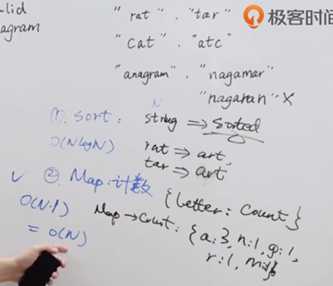 极客时间
lid
nagram
"rat" . "tar"
"cat" . "atc"
"anagram" . "nagamar"
"nagaran" X
① sort :
N
string ⇒ sorted
O(NlogN)
rat ⇒ art,
tar ⇒ art
✓ ② Map : 计数 {letter : count}
O(N·1)
= O(N)
Map → count : {a:3, n:1, g:1,
r:1, m:1}